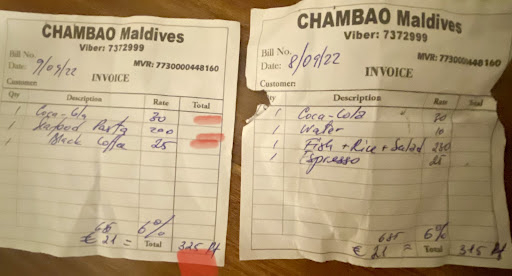 CHAMBAO Maldives
Viber: 7372999
Bill No.
MVR: 7730000448160
Date: 9/09/22
INVOICE
Customer:
Qty Description Rate Total
1 Coca-Cola 30
1 Seafood Pasta 200
1 Black Coffee 25
685 6%
€ 21 = Total 325 Rf
CHAMBAO Maldives
Viber: 7372999
Bill No.
MVR: 7730000448160
Date: 8/09/22
INVOICE
Customer:
Description Rate Total
1 Coca-Cola 30
1 Water 10
1 Fish + Rice + Salad
1 Espresso 25
685 6%
€ 21 = Total 315 Rf